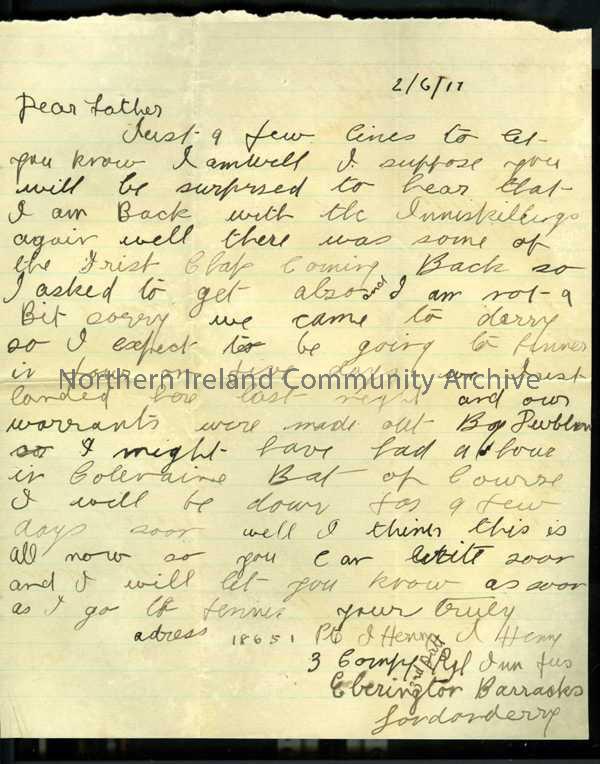 2/6/17
Dear Father
Just a few lines to let
you know I am well I suppose you
will be surprsed to hear that
I am Back with the Inniskellings
again well there was some of
the Irist Chap Coming Back so
I asked to get also and I am not a
Bit sorry we came to derry
so I expect to be going to finner
in four or five days we Just
landed here last night and our
warrants were made out By Dublin
so I might have had a hour
in Colervaine Bat of Course
I will be down for a few
days soon well I think this is
all now so you can write soon
and I will let you know as soon
as I go to finner your truly
adress 18651 Pte J Henry J Henry
3 Compy 3rd Batt Ryl Inn Fus
Eberington Barracks
Londonderry
Northern Ireland Community Archive